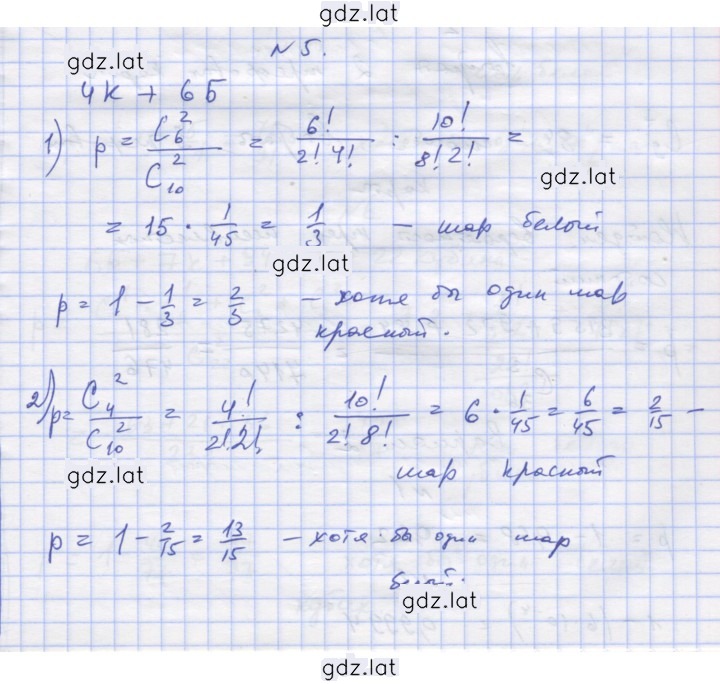 gdz.lat
N 5.
gdz.lat
4К + 6Б
1) p = C₆² / C₁₀² = 6! / 2! 4! : 10! / 8! 2! =
gdz.lat
= 15 · 1/45 = 1/3 — шар белый
gdz.lat
p = 1 - 1/3 = 2/3 — хотя бы один шар
красный.
2) p = C₄² / C₁₀² = 4! / 2! 2! : 10! / 2! 8! = 6 · 1/45 = 6/45 = 2/15 —
шар красный
gdz.lat
p = 1 - 2/15 = 13/15 — хотя бы один шар
белый.
gdz.lat
gdz.lat